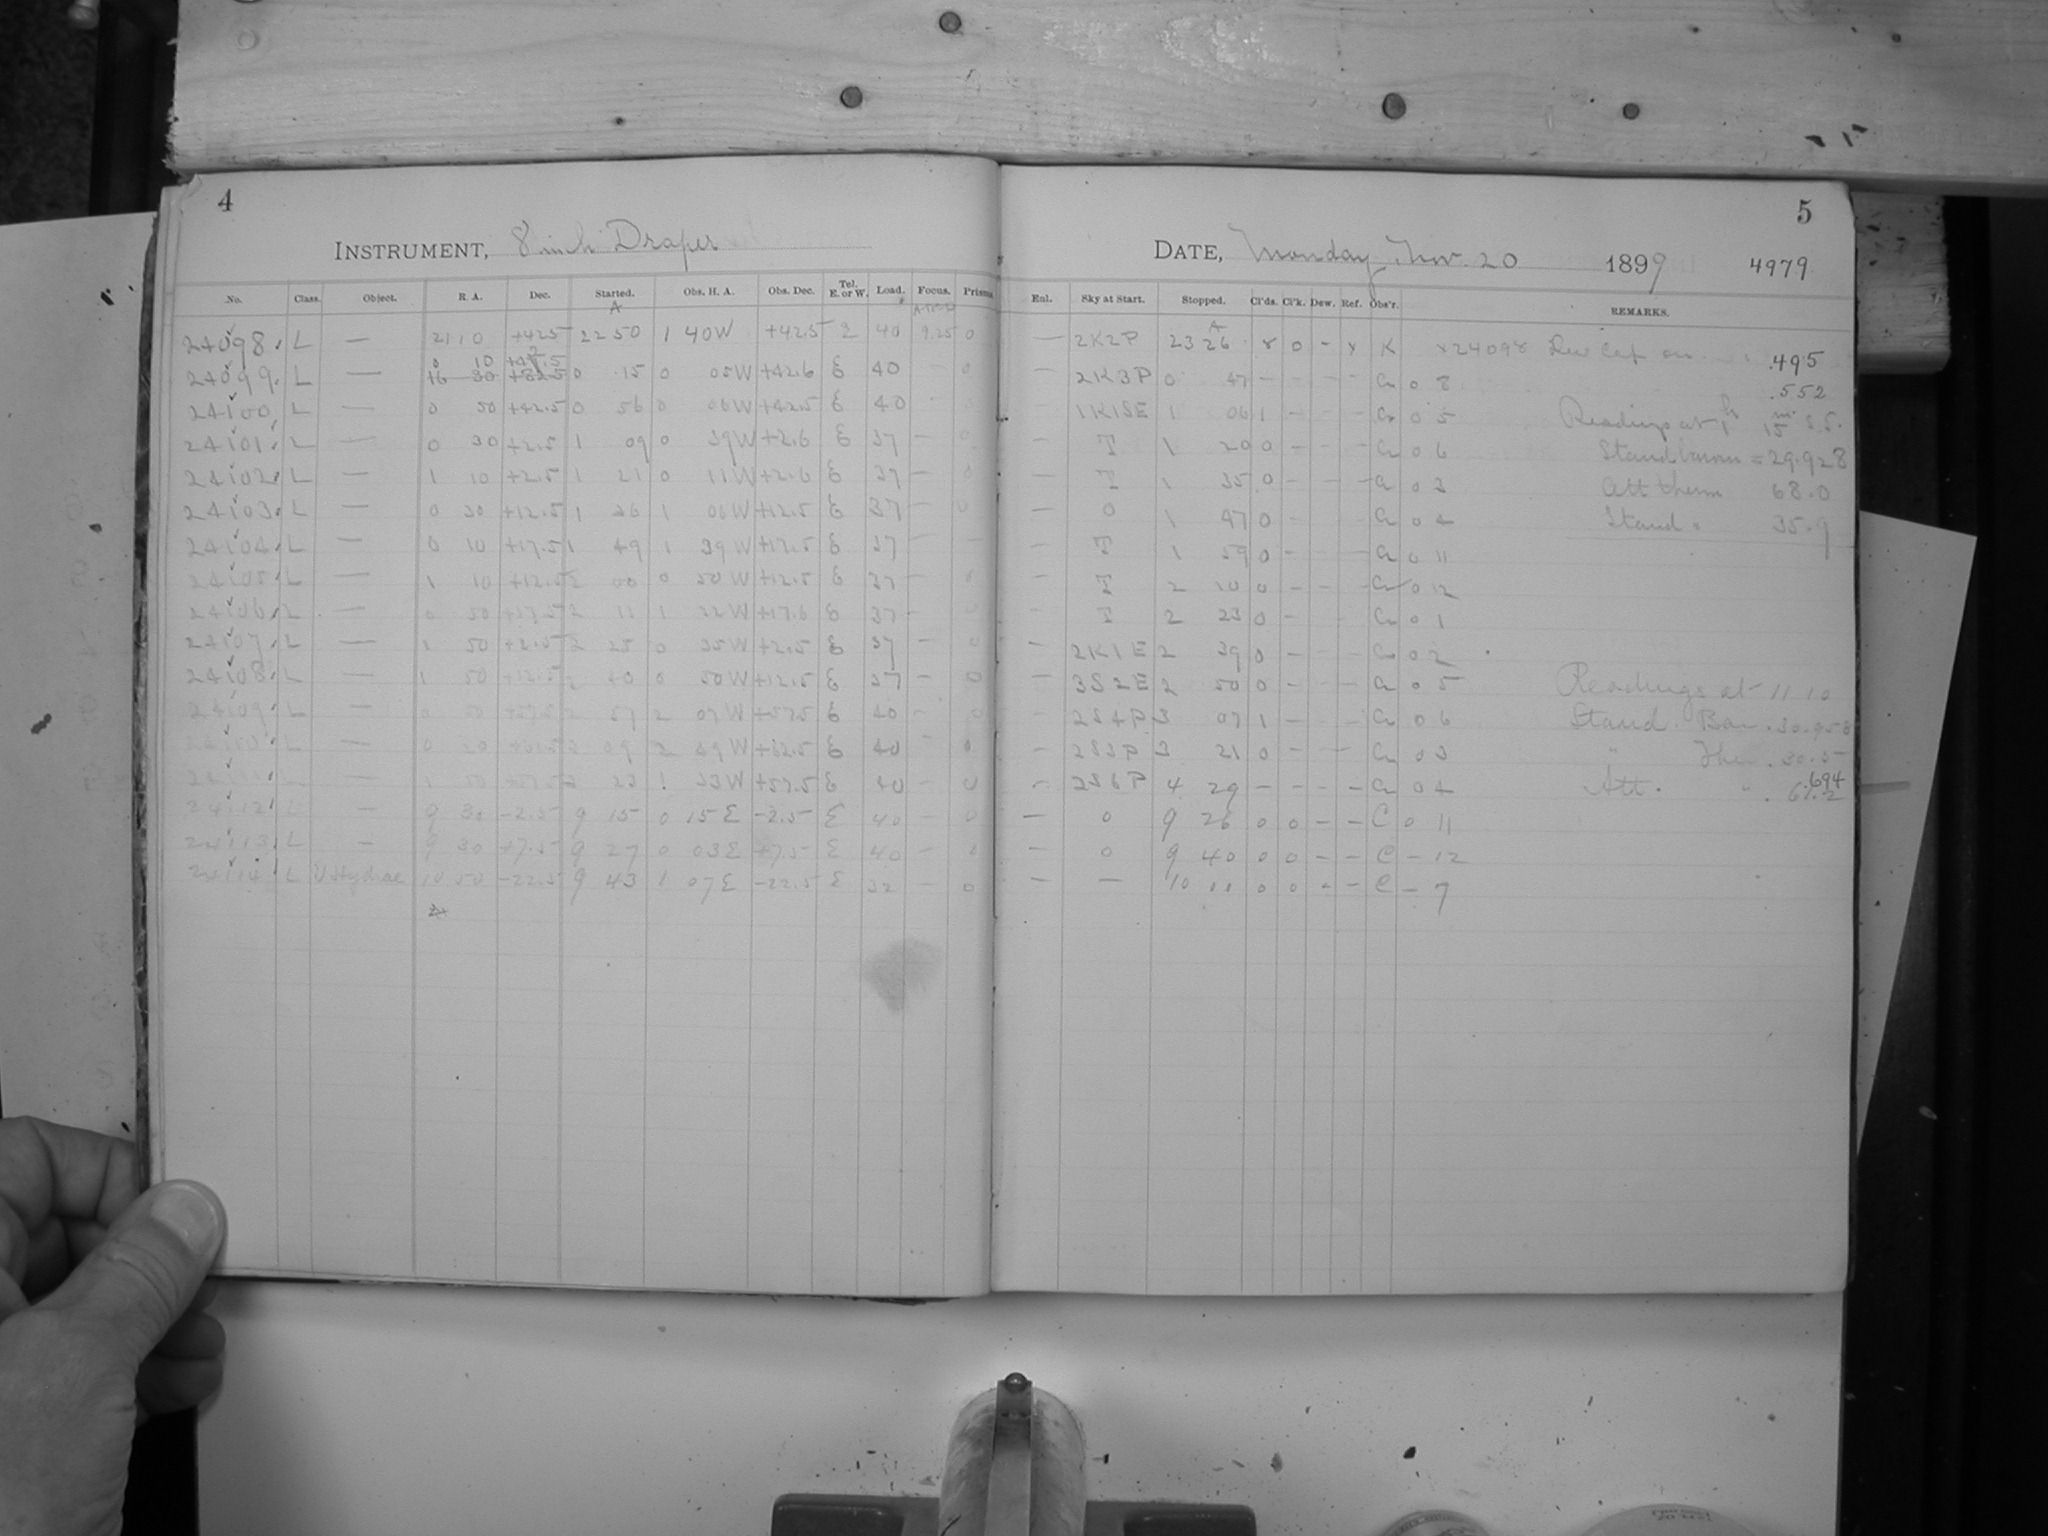 4
INSTRUMENT, 8 inch Draper
No. Class. Object. R. A. Dec. Started. Obs. H. A. Obs. Dec. Tel. E. or W. Load. Focus. Prisms
A
24098. L — 21 10 +42.5 22 50 1 40 W +42.5 40 9.25 0
0 10
24099. L — 16 30 +32.5 0 15 0 05 W +42.6 E 40 — 0
24100. L — 0 50 +42.5 0 56 0 06 W +42.5 E 40 0
24101. L — 0 30 +2.5 1 09 0 39 W +2.6 E 37 — 0
24102. L — 1 10 +2.5 1 21 0 11 W +2.6 E 37 — 0
24103. L — 0 30 +12.5 1 36 1 06 W +12.5 E 37 — 0
24104. L — 0 10 +17.5 1 49 1 39 W +17.5 E 37 —
24105. L — 1 10 +12.5 2 00 0 50 W +12.5 E 37 — 0
24106. L — 0 50 +17.5 2 11 1 22 W +17.6 E 37 — 0
24107. L — 1 50 +2.5 2 25 0 35 W +2.5 E 37 — 0
24108. L — 1 50 +12.5 2 40 0 50 W +12.5 E 37 — 0
24109. L — 0 50 +57.5 2 57 2 07 W +57.5 E 40 — 0
24110. L — 0 20 +62.5 3 09 2 49 W +62.5 E 40 — 0
24111. L — 1 50 +57.5 3 23 1 33 W +57.5 E 40 — 0
24112. L — 9 30 -2.5 9 15 0 15 E -2.5 E 40 — 0
24113. L — 9 30 +7.5 9 27 0 03 E +7.5 E 40 — 0
24114. L U Hydrae 10 50 -22.5 9 43 1 07 E -22.5 E 32 — 0
5
DATE, Monday, Nov. 20 1899 4979
Enl. Sky at Start. Stopped. Cl'ds. Cl'k. Dew. Ref. Obs'r. REMARKS.
A
— 2K2P 23 26 8 0 - x K x24098 Dew Cap on
.495
— 2K3P 0 47 — — — — 0 8 .552
— 1K1SE 1 06 1 — — — 0 5 Readings at 1 h 15 m S.S.
— T 1 20 0 — — — 0 6 Stand barom = 29.928
— T 1 35 0 — — — 0 3 Att therm 68.0
— 0 1 47 0 — — 0 4 Stand " 35.9
— T 1 59 0 — — 0 11
— T 2 10 0 — — — 0 12
— T 2 23 0 — — — 0 1
— 2K1E 2 39 0 — — — 0 2
— 3S2E 2 50 0 — — — 0 5 Readings at 11 10
— 2S4P 3 07 1 — — 0 6 Stand. Bar. 30.958
— 2S3P 3 21 0 — — 0 3 " Ther. 30.5
.694
— 2S6P 4 29 — — — — 0 4 Att. " . 61.2
— 0 9 26 0 0 — — C 0 11
— 0 9 40 0 0 — — C — 12
— — 10 0 0 - — C — 7